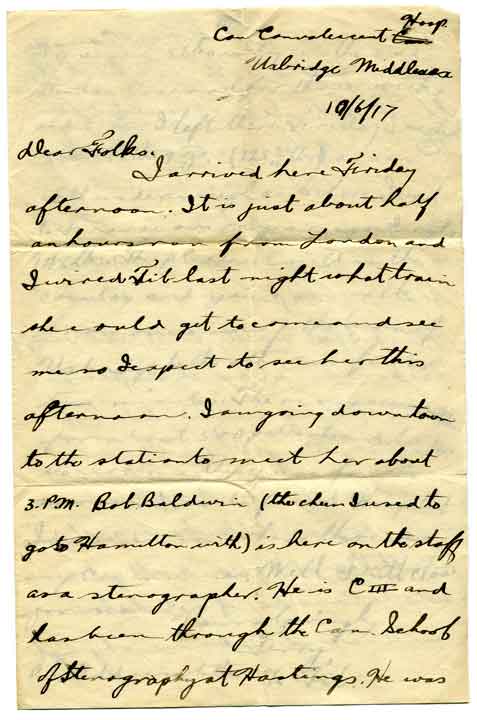 Can Convalescent Hosp.
Uxbridge Middlesex
10/6/17
Dear Folks.
I arrived here Firiday
afternoon. It is just about half
an hours run from London and
I wired Tit last night what train
she could get to come and see
me so I expect to see her this
afternoon. I am going down town
to the station to meet her about
3. P.M. Bob Baldwin (the chum I used to
go to Hamilton with) is here on the staff
as a stenographer. He is C III and
has been through the Can. School
of Stenography at Hastings. He was